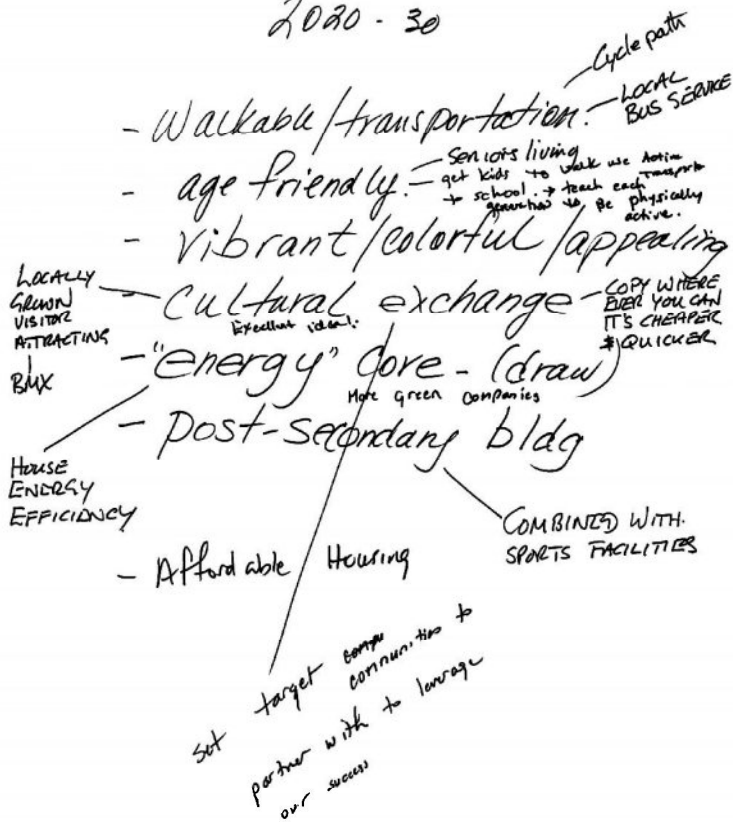 2020 - 30
Cycle path
- Walkable/transportation.
- LOCAL
BUS SERVICE
- age friendly.
- Seniors living
- get kids to walk use Active Transports
to school. → teach each
generation to Be physically
active.
- Vibrant/colorful/appealing
LOCALLY
GROWN
VISITOR
ATTRACTING
BMX
- Cultural exchange
Excellent idea!.
- COPY WHERE
EVER YOU CAN
IT'S CHEAPER
& QUICKER
- "energy" Core - (draw)
More green companies
HOUSE
ENERGY
EFFICIENCY
- post-secondary bldg
COMBINED WITH.
SPORTS FACILITIES
- Affordable Housing
set target communities to
partner with to leverage
our success